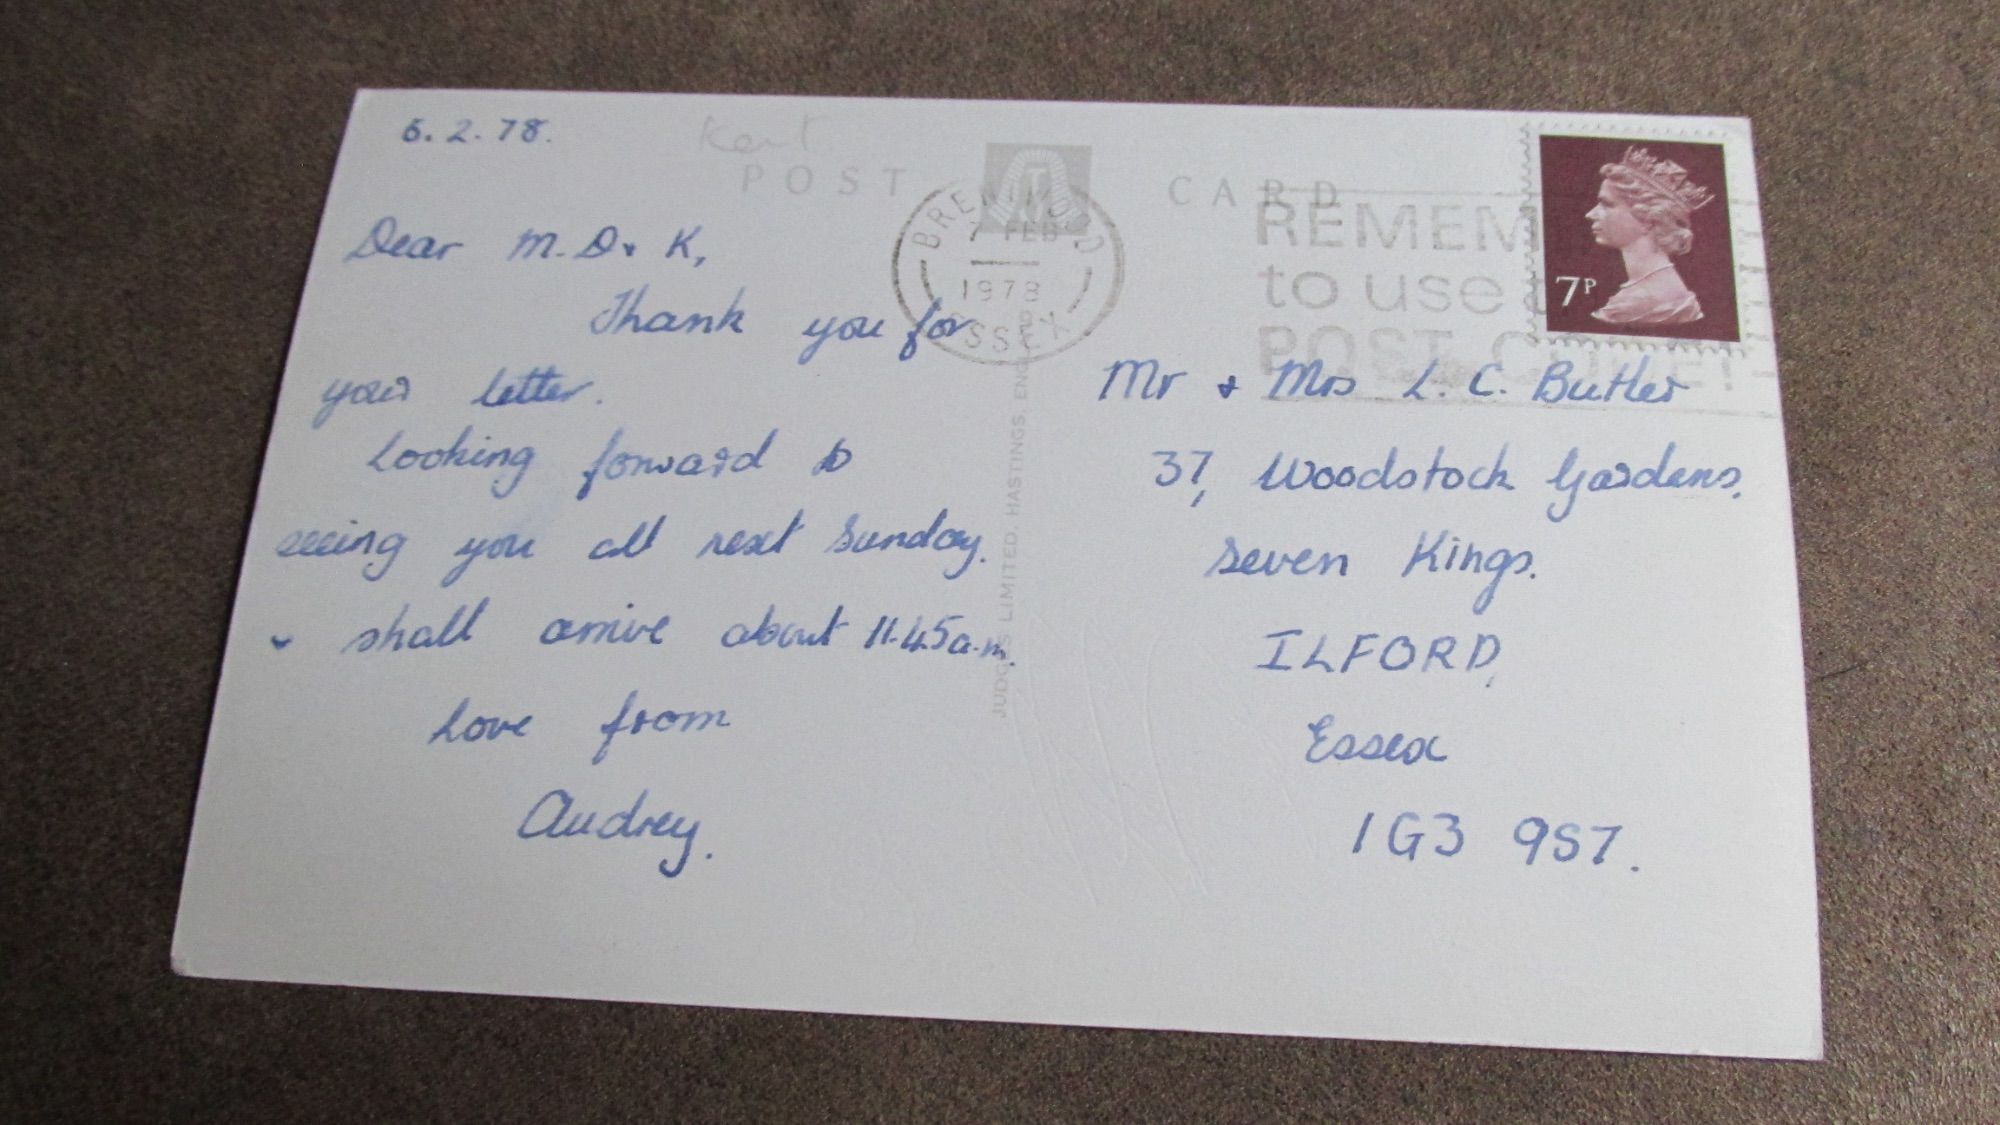 6.2.78.
Kent.
POST CARD
Dear M. D & K,
Thank you for
your letter.
Looking forward to
seeing you all next Sunday.
shall arrive about 11.45a.m.
Love from
Audrey.
BRENTWOOD
7 FEB
1978
ESSEX
REMEM
to use
POST CODE!
7P
Mr & Mrs L. C. Butler
37, Woodstock Gardens,
Seven Kings.
ILFORD,
Essex
IG3 9ST.
JUDGES LIMITED, HASTINGS, ENGLAND